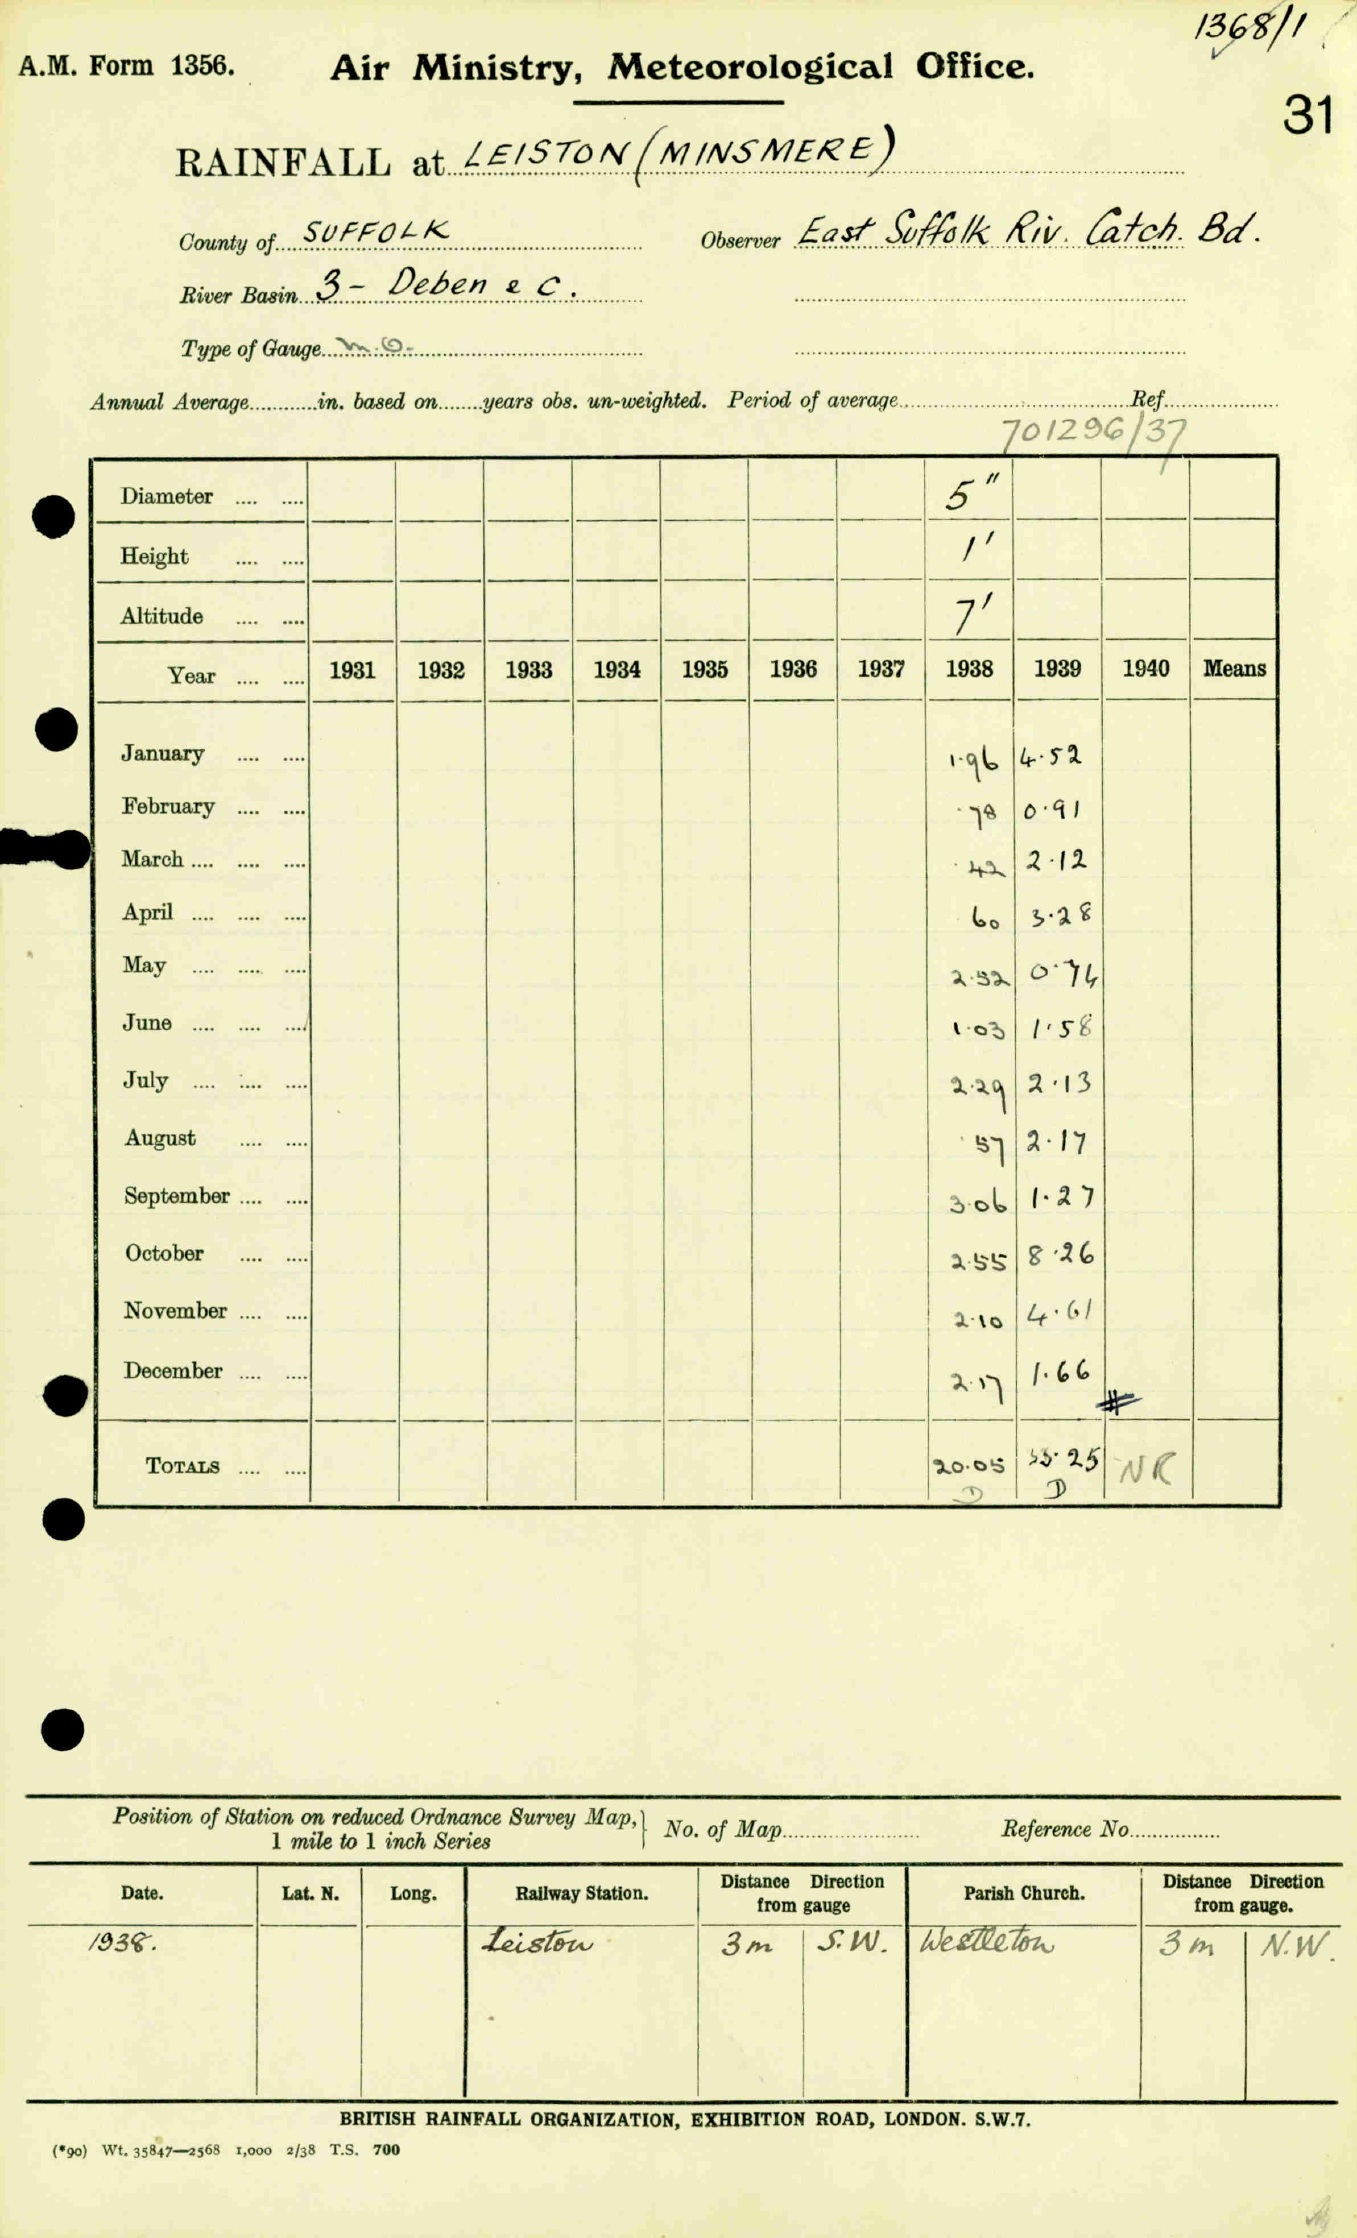 1368/1
A.M. Form 1356. Air Ministry, Meteorological Office.
31
RAINFALL at LEISTON (MINSMERE)
County of SUFFOLK Observer East Suffolk Riv. Catch. Bd.
River Basin 3 - Deben & C.
Type of Gauge M.O.
Annual Average............in. based on........years obs. un-weighted. Period of average............Ref............
701296/37
Diameter .... .... 5"
Height .... .... 1'
Altitude .... .... 7'
Year .... .... 1931 1932 1933 1934 1935 1936 1937 1938 1939 1940 Means
January .... .... 1.96 4.52
February .... .... .78 0.91
March .... .... .... .42 2.12
April .... .... .... .60 3.28
May .... .... .... 2.52 0.74
June .... .... .... 1.03 1.58
July .... .... .... 2.29 2.13
August .... .... .57 2.17
September .... .... 3.06 1.27
October .... .... 2.55 8.26
November .... .... 2.10 4.61
December .... .... 2.17 1.66
#
TOTALS .... .... 20.05 33.25 NR
D D
Position of Station on reduced Ordnance Survey Map, } No. of Map............ Reference No............
1 mile to 1 inch Series
Date. Lat. N. Long. Railway Station. Distance Direction from gauge Parish Church. Distance Direction from gauge.
1938. Leiston 3 m S.W. Westleton 3 m N.W.
BRITISH RAINFALL ORGANIZATION, EXHIBITION ROAD, LONDON. S.W.7.
(*90) Wt. 35847—2568 1,000 2/38 T.S. 700